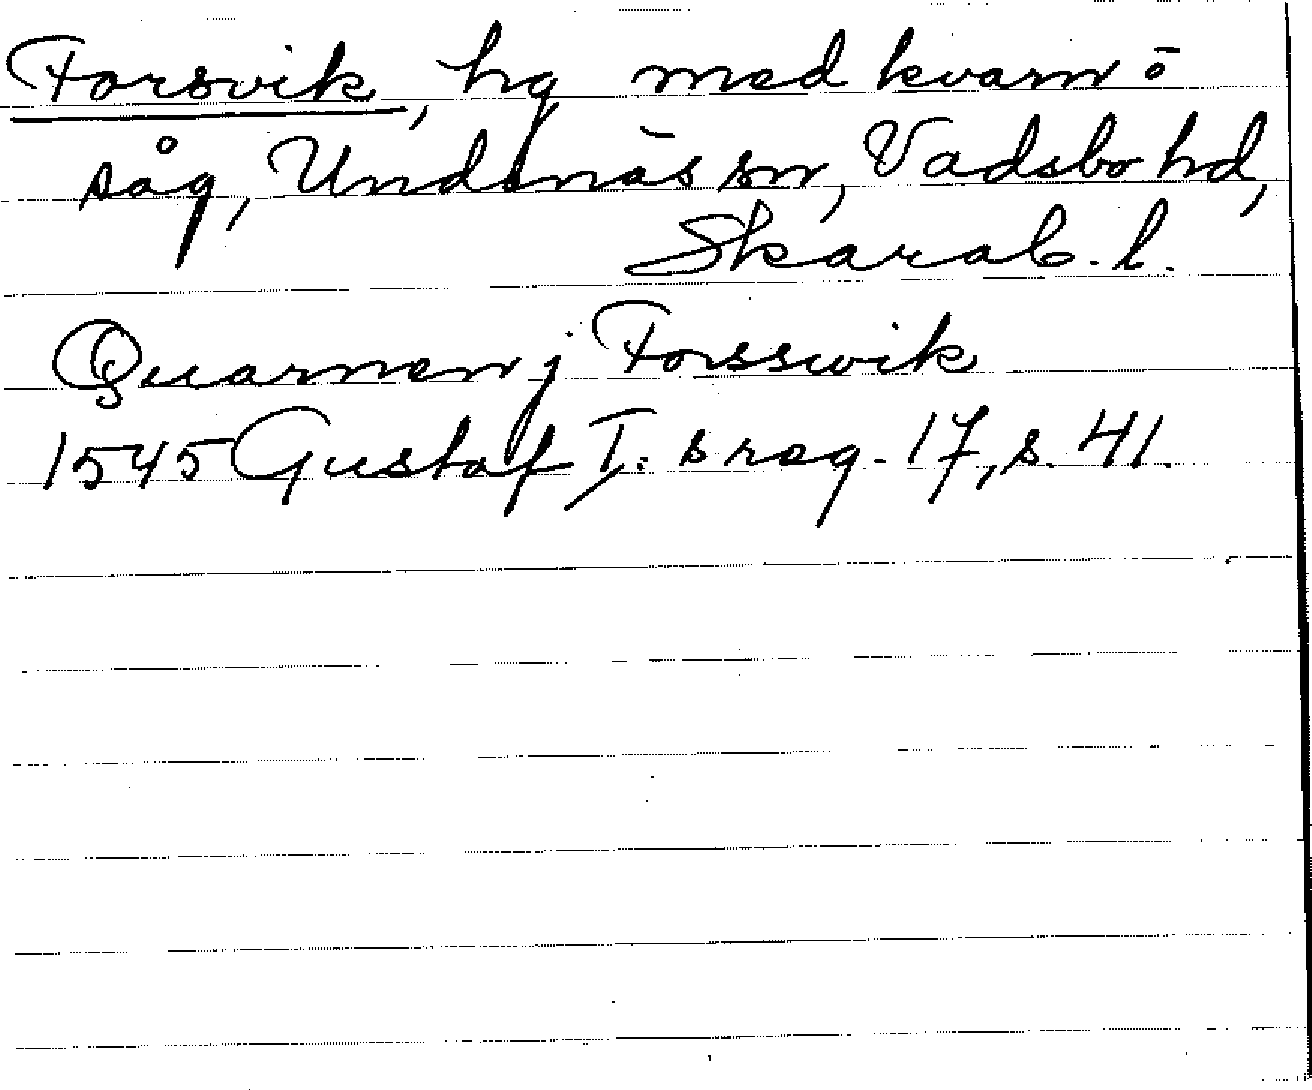 Forsvik, hg med kvarn o
såg, Undenäs sn, Vadsbo hd,
Skarab. l.
Quarnen j Forsswik
1545 Gustaf I:s reg. 17, s. 41.